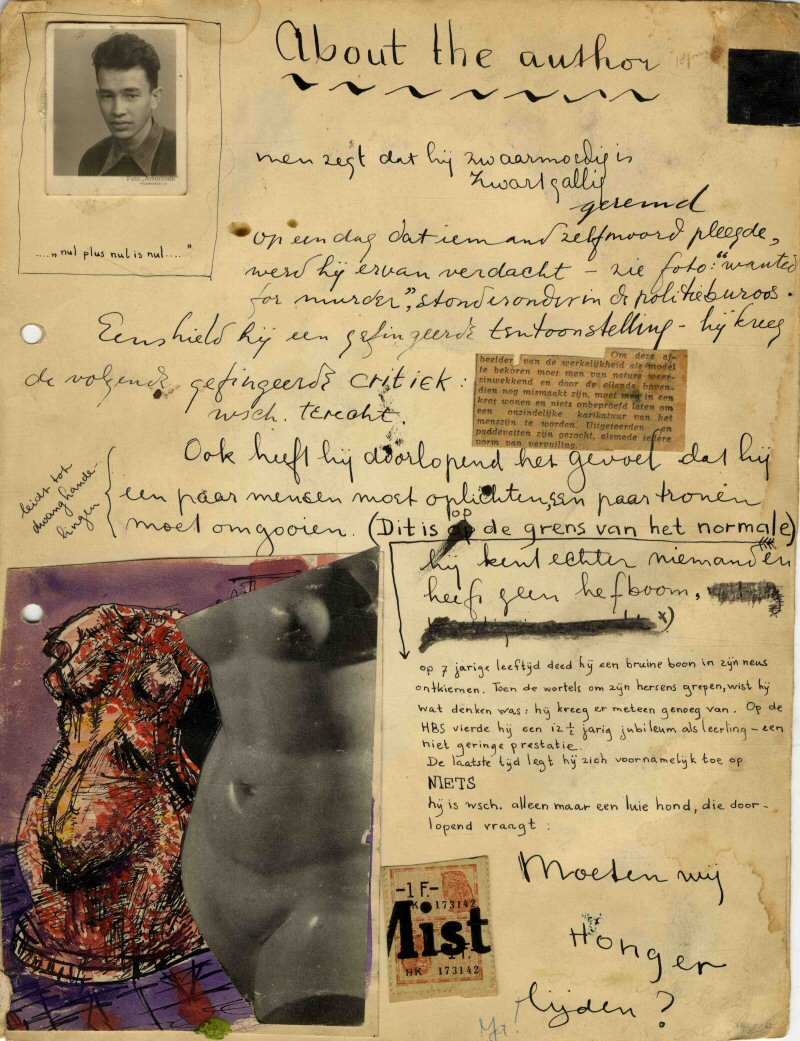 About the author
Foto „Amerioain
....„nul plus nul is nul....”
men zegt dat hij zwaarmoedig is
zwartgallig
geremd
op een dag dat iemand zelfmoord pleegde,
werd hij ervan verdacht – zie foto: "wanted
for murder", stond eronder in de politieburoos.
Eens hield hij een gefingeerde tentoonstelling – hij kreeg
de volgende gefingeerde critiek:
wsch. terecht.
Om deze af-
beelder van de werkelijkheid als model
te bekoren moet men van nature weer-
zinwekkend en door de ellende boven-
dien nog mismaakt zijn, moet men in een
krot wonen en niets onbeproefd laten om
een onzindelijke karikatuur van het
menszijn te worden. Uitgeteerden en
paddevetten zijn gezocht, alsmede iedere
vorm van vervuiling.
Ook heeft hij doorlopend het gevoel dat hij
een paar mensen moet oplichten, een paar tronen
moet omgooien. (Dit is op de grens van het normale)
leidt tot
dwanghande-
lingen
hij kent echter niemand en
heeft geen hefboom.
op 7 jarige leeftijd deed hij een bruine boon in zijn neus
ontkiemen. Toen de wortels om zijn hersens grepen, wist hij
wat denken was: hij kreeg er meteen genoeg van. Op de
HBS vierde hij een 12 ½ jarig jubileum als leerling – een
niet geringe prestatie.
De laatste tijd legt hij zich voornamelijk toe op
NIETS
hij is wsch. alleen maar een luie hond, die door-
lopend vraagt:
-1 F.-
8K 173142
Mist
8K 173142
Moeten wij
Honger
lijden?